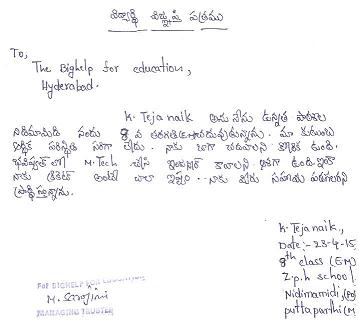 విద్యార్థి విజ్ఞప్తి పత్రము
To,
The Bighelp for education,
Hyderabad.
K. Teja naik అను నేను ఉన్నత పాఠశాల
నిడిమామిడి నందు 8 వ తరగతి చదువుతున్నాను. మా కుటుంబ
ఆర్థిక పరిస్థితి సరిగా లేదు. నాకు బాగా చదవాలని కోరిక ఉంది.
భవిష్యత్ లో M.Tech చేసి ఇంజనీర్ కావాలని ఆశగా ఉంది. ఇంకా
నాకు క్రికెట్ అంటే చాలా ఇష్టం. నాకు మీరు సహాయ పడగలరని
ప్రార్థిస్తున్నాను.
K. Teja naik,
Date:- 23-4-15
8th class (EM)
Z.p.h school
Nidimamidi,
puttaparthi (M
For BIGHELP FOR EDUCATION
M. Sarojini
MANAGING TRUSTEE